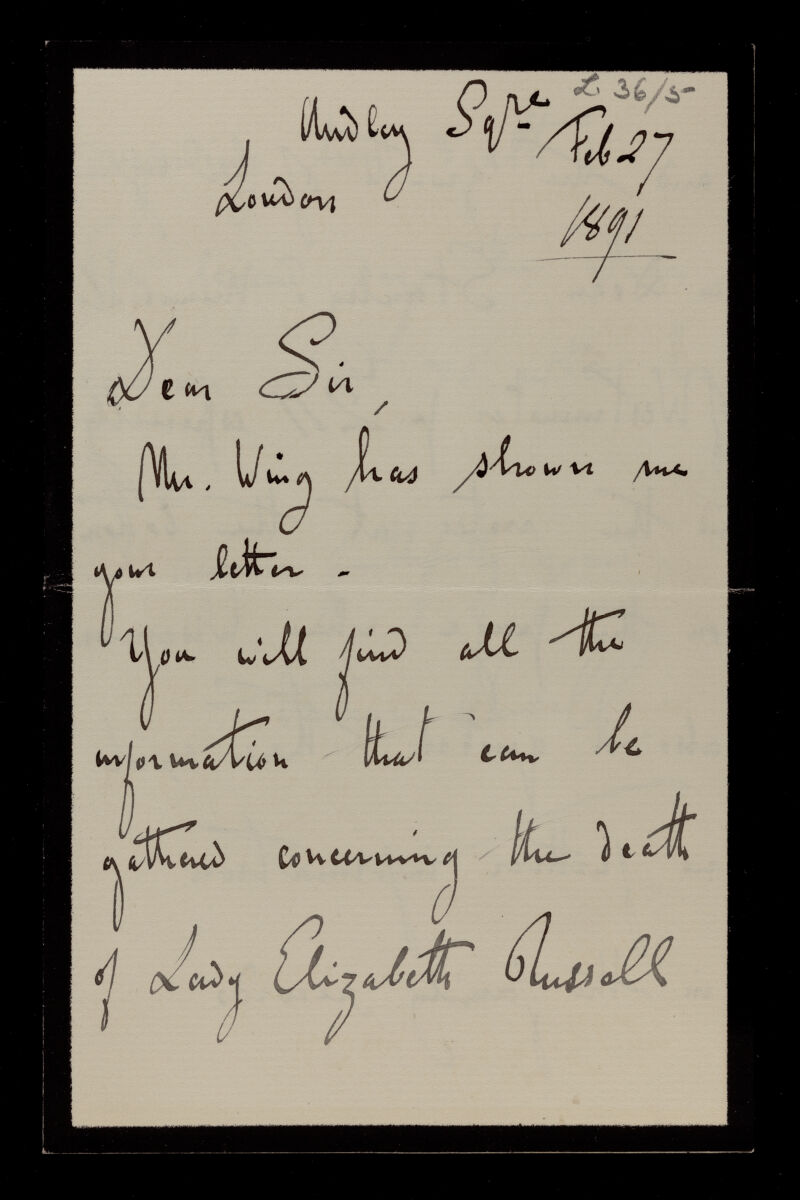 L 36/5
Audley Sqre
Feb 27
London
1891
Dear Sir,
Mr. Wing has shown me
your letter -
You will find all the
information that can be
gathered concerning the death
of Lady Elizabeth Russell